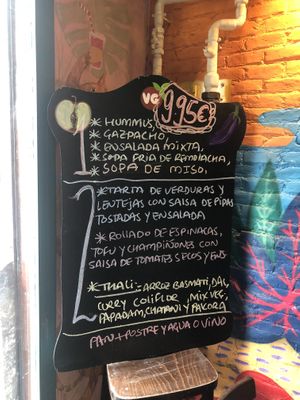 VG 9.95€
1 * HUMMUS,
* GAZPACHO,
* ENSALADA MIXTA,
* SOPA FRIA DE REMOLACHA,
* SOPA DE MISO.
2 * TARTA DE VERDURAS Y
LENTEJAS CON SALSA DE PIPAS
TOSTADAS Y ENSALADA
* ROLLADO DE ESPINACAS,
TOFU Y CHAMPIÑONES CON
SALSA DE TOMATES SECOS Y ENS.
* THALI:- ARROZ BASMATI, DAL,
CURRY COLIFLOR, MIX VEG,
PAPADAM, CHATANI Y PAKORA
PAN + POSTRE Y AGUA O VINO